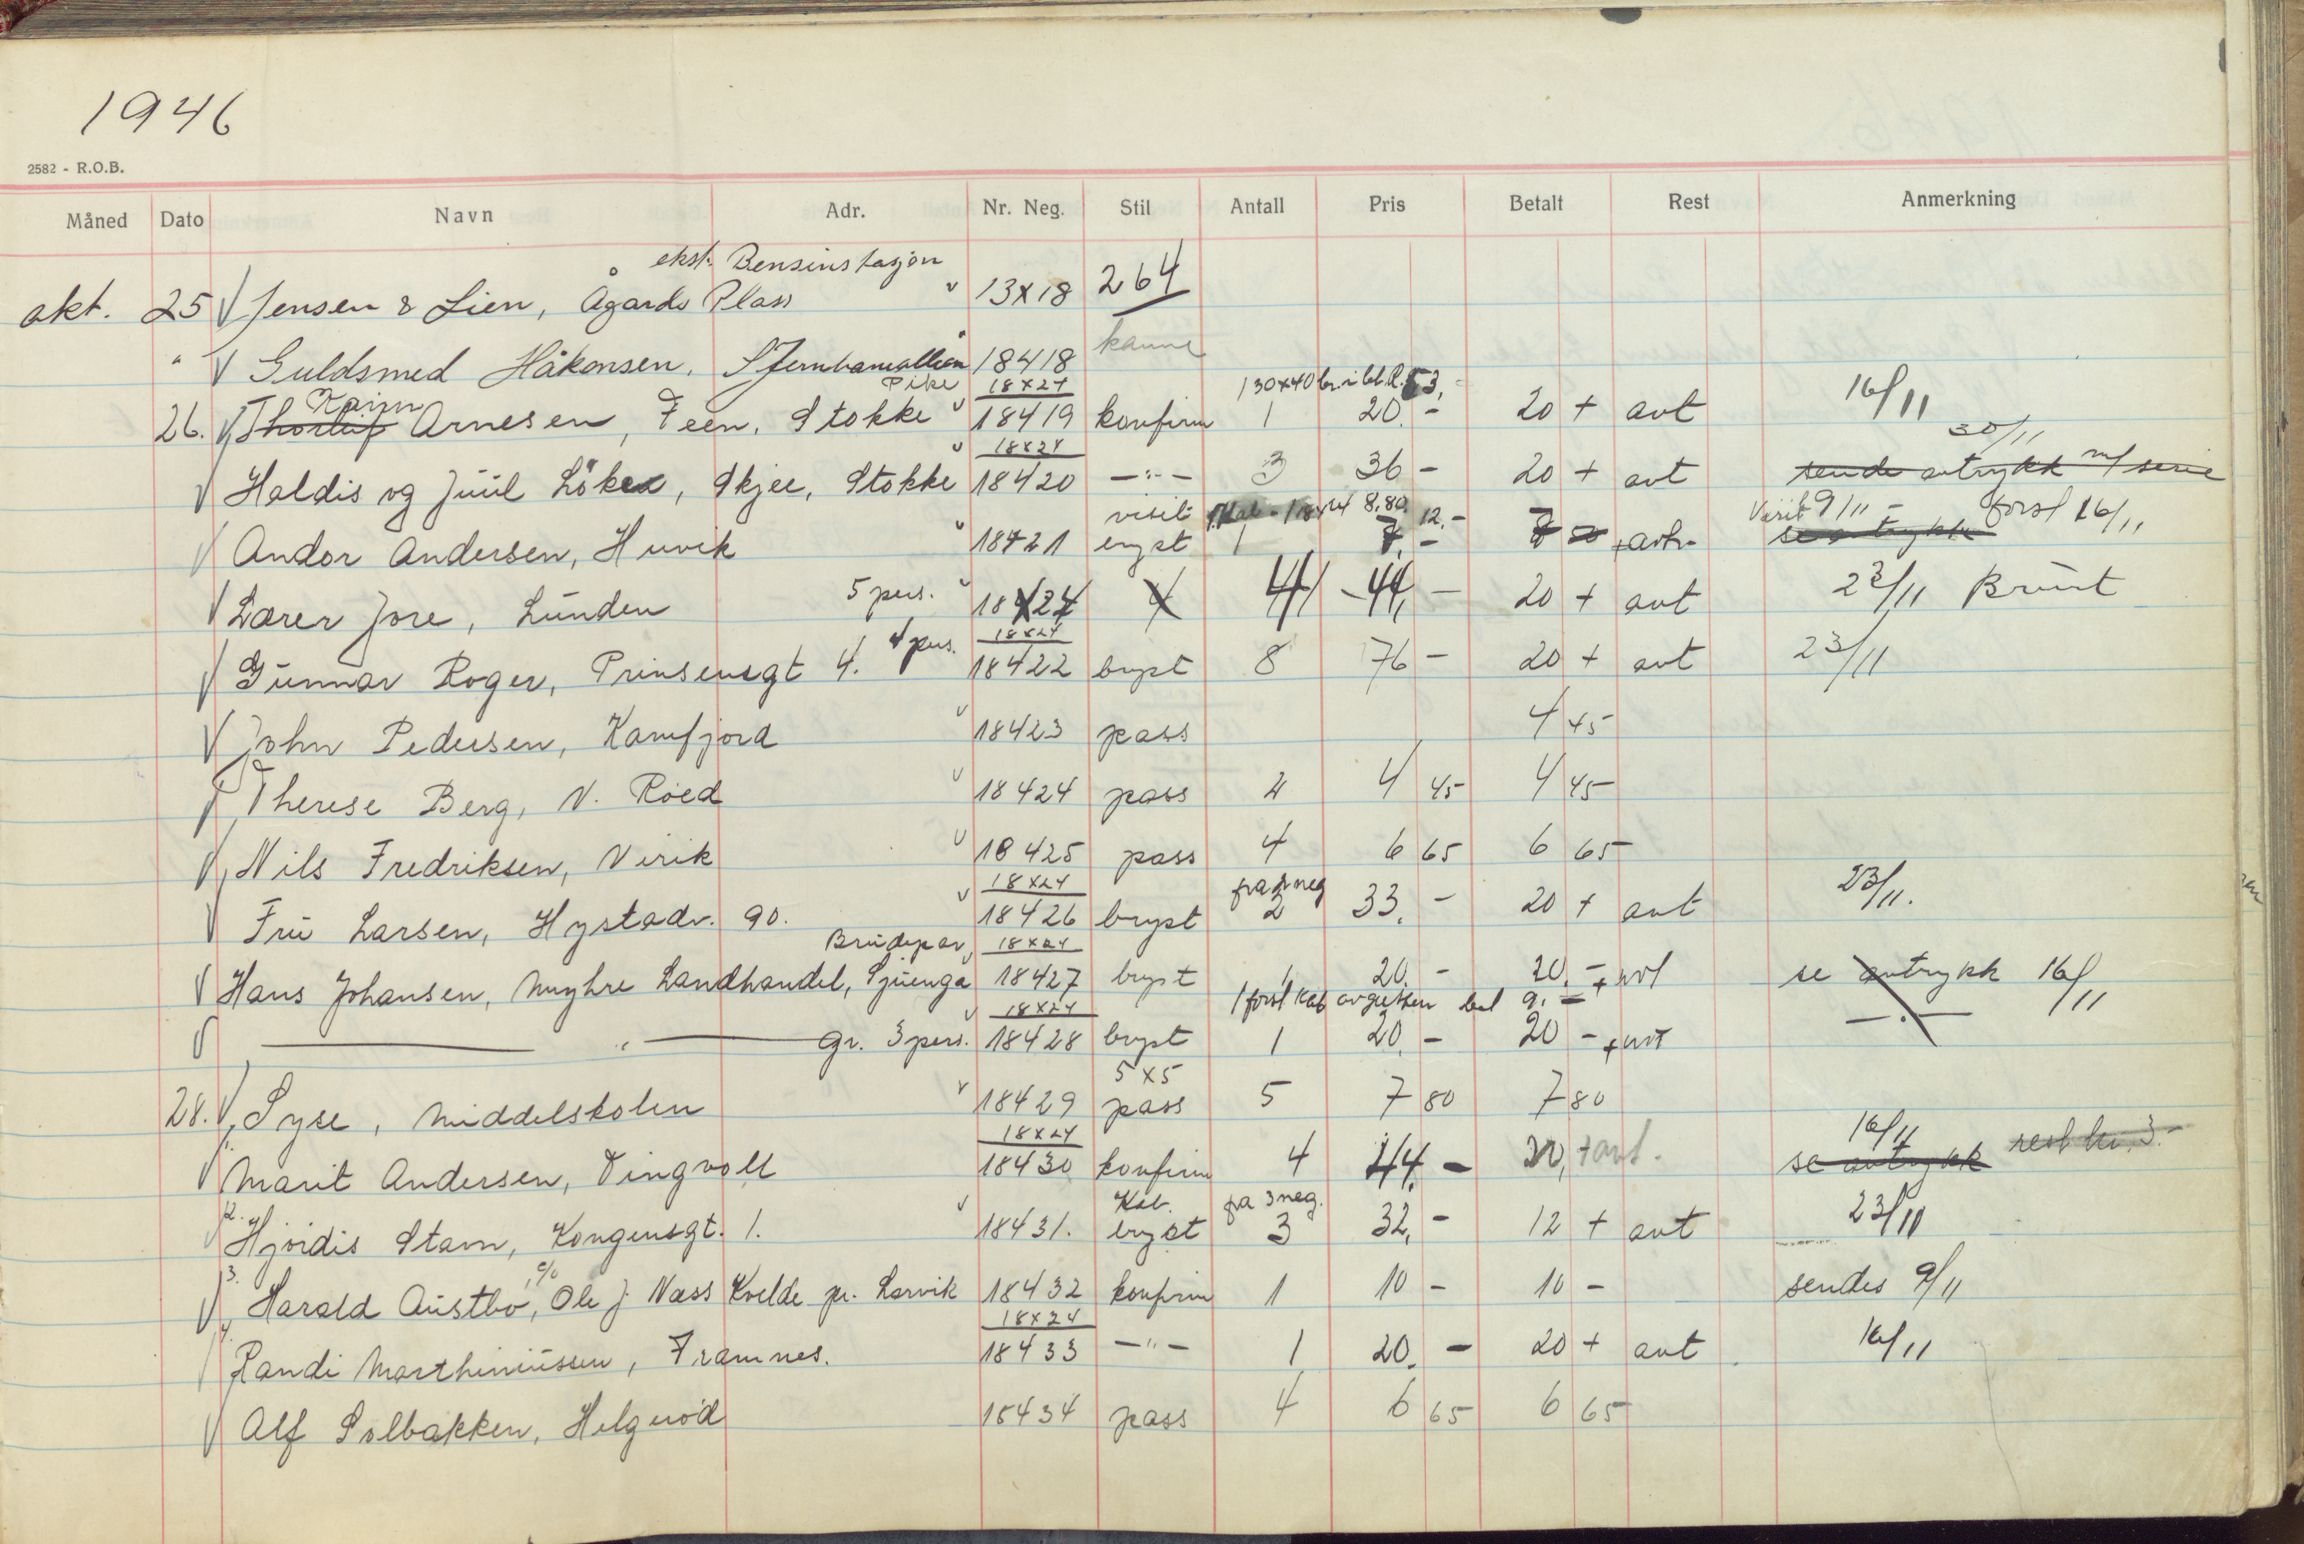 1946
2582 - R.O.B.
Måned Dato Navn Adr. Nr. Neg. Stil Antall Pris Betalt Rest Anmerkning
ekst. Bensinstasjon
okt. 25 Jensen & Lien, Ågards Plass 13x18 264
" Guldsmed Håkonsen, 18418 kanne
Karin Pike 18x24 1 30x40
26. Thorleif Arnesen, Feen, Stokke 18419 konfirm 1 20.- 20 + avt 16/11
18x24 30/11
Haldis og Juul Löke, Skjee, Stokke 18420 -"- 3 36 - 20 + avt sende avtrykk m/ serie
visit 8,80 12.- Visit 9/11 - forst 16/11
Andor Andersen, Huvik 18421 bryst 1 7,- se avtrykk
Lærer Jore, Lunden 5 pers. 4 44,- 20 + avt 23/11 Brunt
4 pers. 18x24
Gunnar Roger, Prinsensgt 4. 18422 bryst 8 76 - 20 + avt 23/11
John Pedersen, Kamfjord 18423 pass 4 45
Therese Berg, V. Röed 18424 pass 2 4 45 4 45
Nils Fredriksen, Virik 18425 pass 4 6 65 6 65
18x24 fra 2 neg
Fru Larsen, Hystadv. 90. 18426 bryst 2 33.- 20 + avt 23/11.
Brudepar 18x24
Hans Johansen, Myhre Landhandel, Sjuenga 18427 bryst 1 20.- 20.- + avt se avtrykk 16/11
18x24 1 forst kab av gutten bet 9.-
-"- gr. 3 pers. 18428 bryst 1 20 - 20 - + avt -"-
5x5
28. Syse, Middelskolen 18429 pass 5 7 80 7 80
18x24 16/11 rest kr. 3.-
Marit Andersen, Tingvoll 18430 konfirm 4 44,- 20, + avt. se avtrykk
2. Kab. fra 3 neg.
Hjördis Stam, Kongensgt. 1. 18431. bryst 3 32,- 12 + avt 23/11
3. c/o
Harald Austbö, Ole J. Næss Kvelde pr. Larvik 18432 konfirm 1 10 - 10 - sendes 9/11
4. 18x24
Randi Marthiniussen, Framnes. 18433 -"- 1 20.- 20 + avt 16/11
Alf Solbakken, Helgeröd 18434 pass 4 6 65 6 65